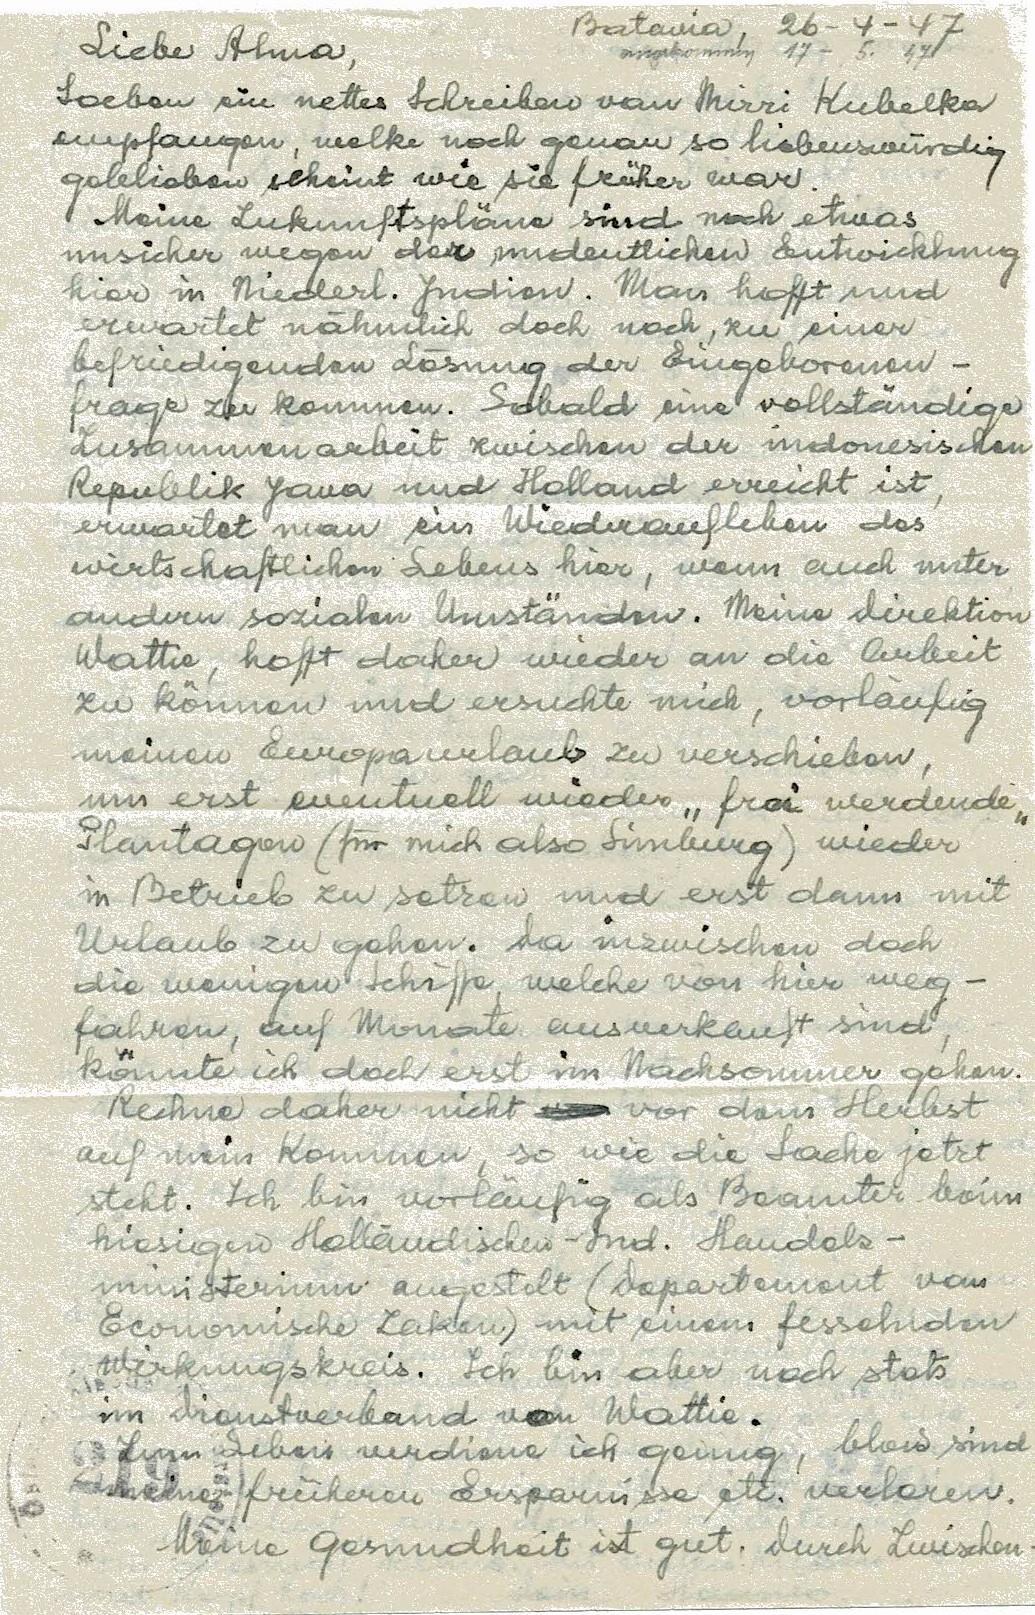 Batavia, 26-4-47
angekommen 17 - 5. 47
Liebe Alma,
Soeben ein nettes Schreiben van Mirri Kubelka
empfangen, welke noch genau so liebenswürdig
geblieben scheint wie sie früher war.
Meine Zukunftspläne sind noch etwas
unsicher wegen der undeutlichen Entwicklung
hier in Niederl. Indien. Man hofft und
erwartet nähmlich doch noch, zu einer
befriedigenden Lösung der Eingeborenen-
frage zu kommen. Sobald eine vollständige
Zusammenarbeit zwischen der indonesischen
Republik Java und Holland erreicht ist,
erwartet man ein Wiederaufleben des
wirtschaftlichen Lebens hier, wenn auch unter
andern sozialen Umständen. Meine Direktion
Wattie, hofft daher wieder an die Arbeit
zu können und ersuchte mich, vorläufig
meinen Europaurlaub zu verschieben,
um erst eventuell wieder „frei werdende„
Plantagen (für mich also Limburg) wieder
in Betrieb zu setzen und erst dann mit
Urlaub zu gehen. Da inzwischen doch
die wenigen Schiffe, welche von hier weg-
fahren, auf Monate ausverkauft sind,
könnte ich doch erst im Nachsommer gehen.
Rechne daher nicht vor dem Herbst
auf mein Kommen, so wie die Sache jetzt
steht. Ich bin vorläufig als Beamter beim
hiesigen Holländischen-Ind. Handels-
ministerium angestelt (Departement van
Economische Zaken) mit einem fesselnden
Wirkungskreis. Ich bin aber noch stets
im Dienstverband van Wattie.
Zum Leben verdiene ich genug, blos sind
meine früheren Ersparnisse etc. verloren.
Meine Gesundheit ist gut. Durch Zwischen-